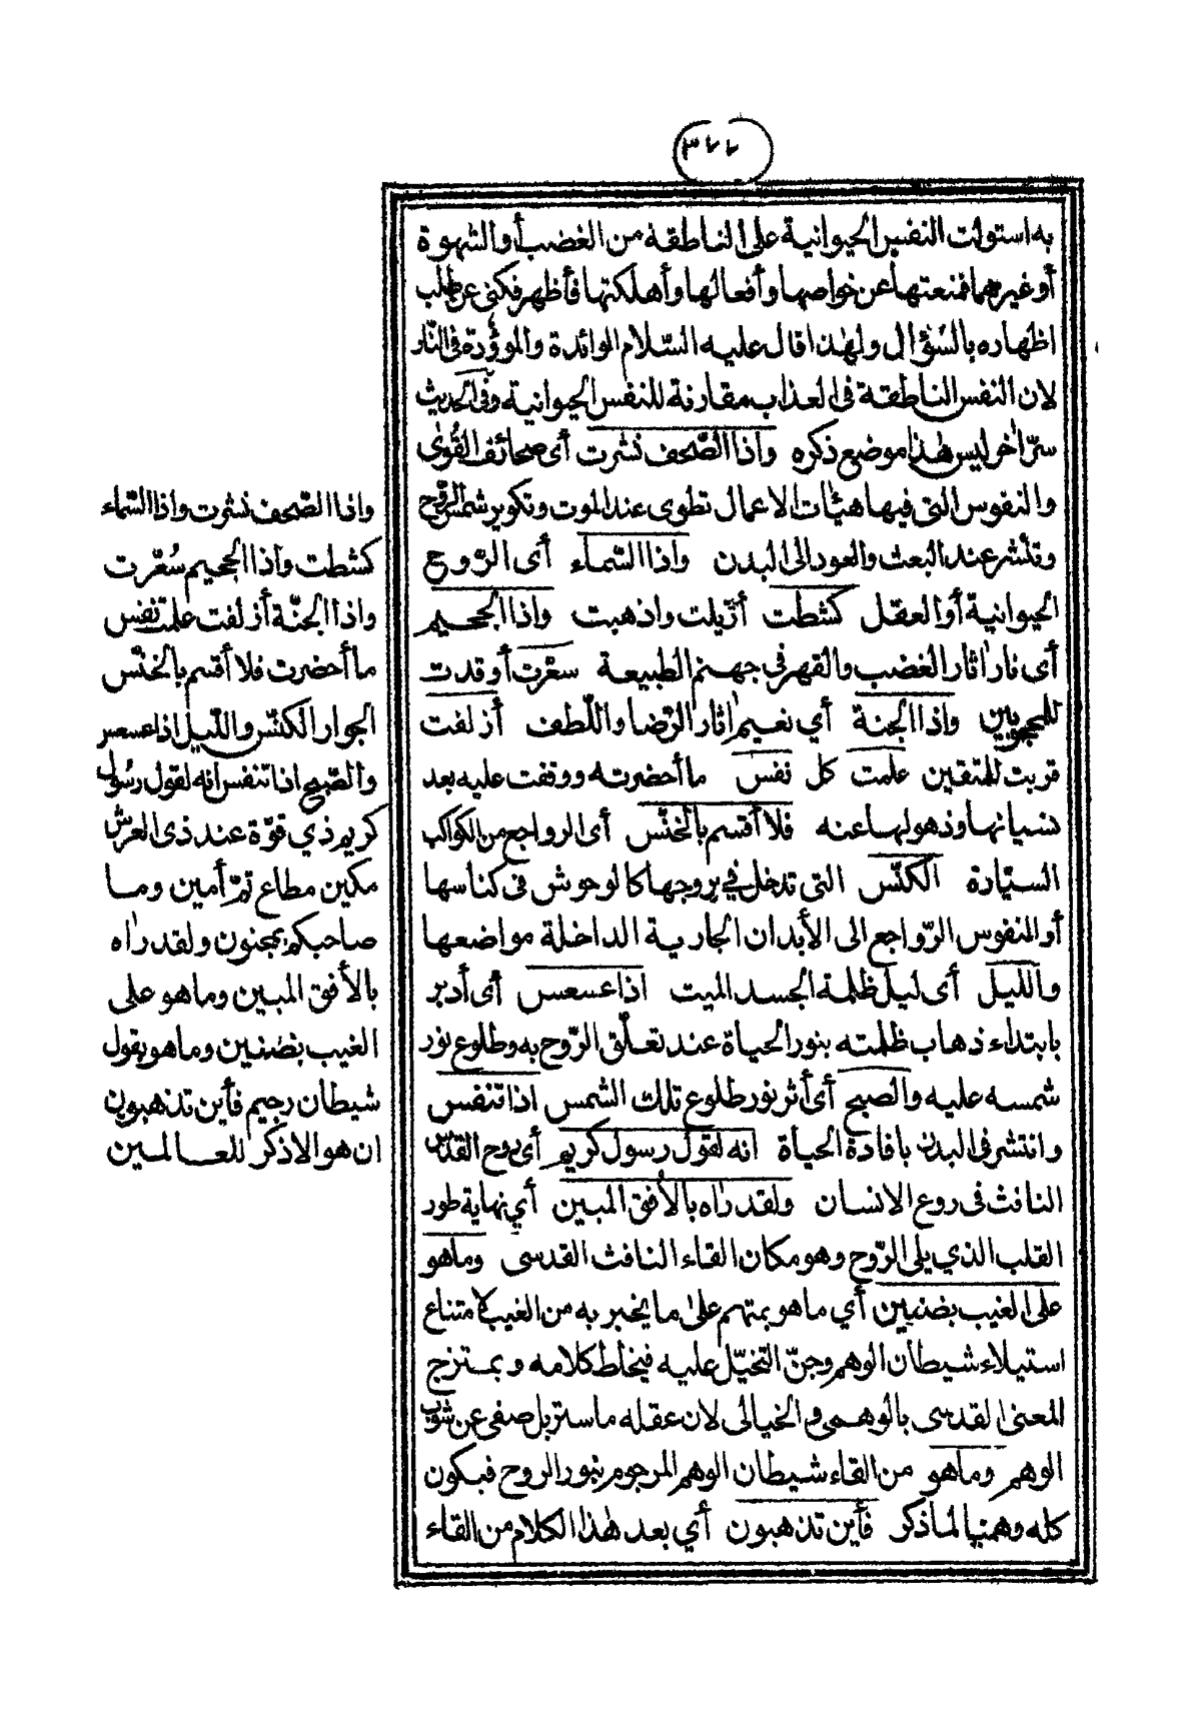 ٣٧٧
به استولت النفس الحيوانية على الناطقة من الغضب أو الشهوة
أو غيرهما فمنعتها عن خواصها وأفعالها وأهلكتها فأظهر فكنى عن طلب
اظهاره بالسُؤال ولهٰذا قال عليه السّلام الوائدة والموؤدة فى النّار
لان النفس الناطقة فى العذاب مقارنة للنفس الحيوانية وفى الحديث
سرّ اٰخر ليس هٰذا موضع ذكره واذا الصّحف نشرت أى صحائف القُوىٰ
والنفوس التى فيها هيئات الاعمال تطوى عند الموت وتكوير شمس الرّوح
وتنشر عند البعث والعود الى البدن واذا السّماء أى الرّوح
الحيوانية أو العقل كشطت أزّيلت واذهبت واذا الجحيم
أى نار اٰثار الغضب والقهر فى جهنم الطبيعة سعّرت أوقدت
للمحجوبين واذا الجنة أي نعيم اٰثار الرّضا واللّطف أزلفت
قربت للمتقين علمت كل نفس ما أحضرته ووقفت عليه بعد
نسيانها وذهولها عنه فلا أقسم بالخنّس أى الرواجع من الكواكب
السيّارة الكنّس التى تدخل في بروجها كالوحوش فى كناسها
أو النفوس الرّواجع الى الأبدان الجارية الداخلة مواضعها
والليل أى ليل ظلمة الجسد الميت اذا عسعس أى أدبر
بابتداء ذهاب ظلمته بنور الحياة عند تعلّق الرّوح به وطلوع نور
شمسه عليه والصبح أى أثر نور طلوع تلك الشمس اذا تنفس
وانتشر فى البدن بافادة الحياة انه لقول رسول كريم أى روح القدس
النافث فى روع الانسان ولقد رٰاه بالأفق المبين أي نهاية طور
القلب الذي يلى الرّوح وهو مكان القاء النافث القدسى وماهو
على الغيب بضنين أي ما هو بمتهم علىٰ ما يخبر به من الغيب لامتناع
استيلاء شيطان الوهم وجنّ التخيّل عليه فيخلط كلامه ويمتزج
المعنى القدسى بالوهمى والخيالى لان عقله ماستر بل صفى عن شوب
الوهم وماهو من القاء شيطان الوهم المرجوم بنور الروح فيكون
كله وهميا لما ذكر فأين تذهبون أي بعد هٰذا الكلام من القاء
واذا الصّحف نشرت واذا السّماء
كشطت واذا الجحيم سُعّرت
واذا الجنّة أزلفت علمت نفس
ما أحضرت فلا أقسم بالخنّس
الجوار الكنّس واللّيل اذا عسعس
والصّبح اذا تنفس انه لقول رسُول
كريم ذي قوّة عند ذى العرش
مكين مطاع ثمّ أمين وما
صاحبكم بمجنون ولقد رٰاه
بالأفق المبين وماهو على
الغيب بضنين وماهو بقول
شيطان رجيم فأين تذهبون
ان هو الا ذكر للعالمين